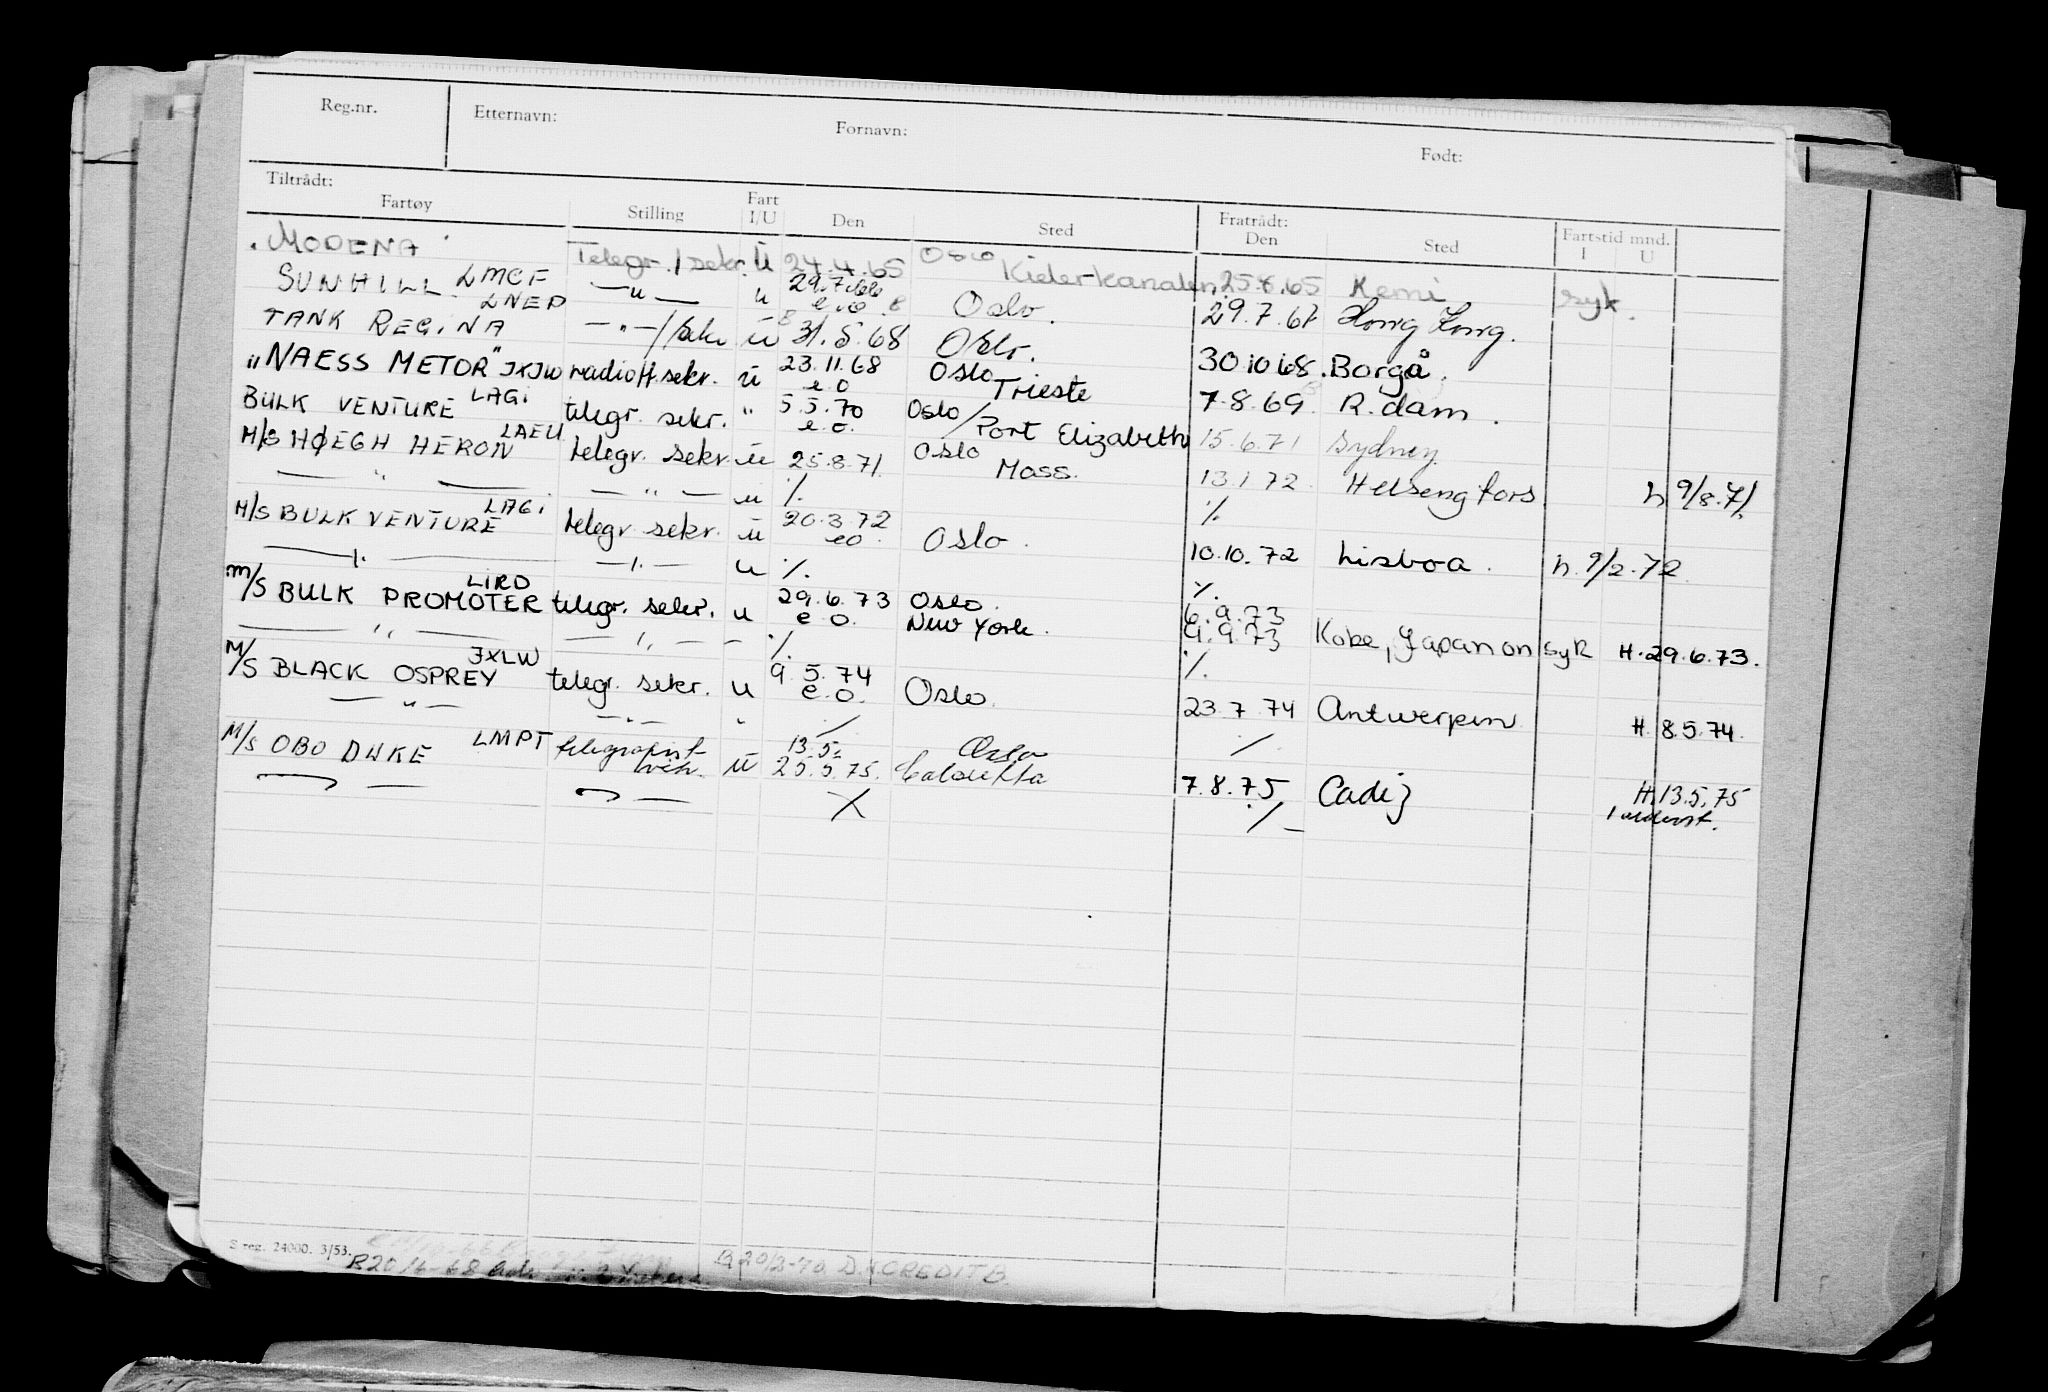 Reg.nr. Etternavn: Fornavn: Født:
Tiltrådt: Fartøy Stilling Fart I/U Den Sted Fratrådt: Den Sted Fartstid mnd. I U
"MODENA" Telegr./sekr. u 24.4.65 Oslo Kielerkanalen 25.8.65 Kemi syk.
SUNHILL LMCF —"— u 29.7.66 e.o. Oslo. 29.7.67 Hong Kong.
TANK REGINA LNEP —"—/sekr u 31.8.68 Oslo. 30.10.68. Borgå.
"NAESS METOR" JXJW radioff.sekr. u 23.11.68 e.o Oslo Trieste 7.8.69 R.dam.
BULK VENTURE LAGI telegr. sekr. " 5.5.70 e.o. Oslo/Port Elizabeth 15.6.71 Sydney
M/S HØEGH HERON LAEU telegr. sekr. u 25.8.71. Oslo Moss. 13.1.72 Helsengfors
— " — — " — u ./. ./. h 9/8.71.
M/S BULK VENTURE LAGI telegr. sekr. u 20.3.72 eo. Oslo. 10.10.72 Lisboa.
—"— —"— u ./. ./. h. 9/2.72.
M/S BULK PROMOTER LIRD telegr. sekr. u 29.6.73 e o. Oslo. New York. 6.9.73 9.9.73 Kobe, Japan on syk
— " — — " — - ./. ./. H.29.6.73.
M/S BLACK OSPREY JXLW telegr. sekr. u 9.5.74 e.o. Oslo. 23.7.74 Antwerpen
— " — —"— " ./. ./. H. 8.5.74.
M/S OBO DUKE LMPT telegrafist u 13.5. 25.5.75. Oslo Calcutta 7.8.75 Cadiz
— " — — " — ./. ./. H.13.5.75
S reg. 24000. 3/53.
R20/6-68 R 20/2-70 D.N.CREDITB.